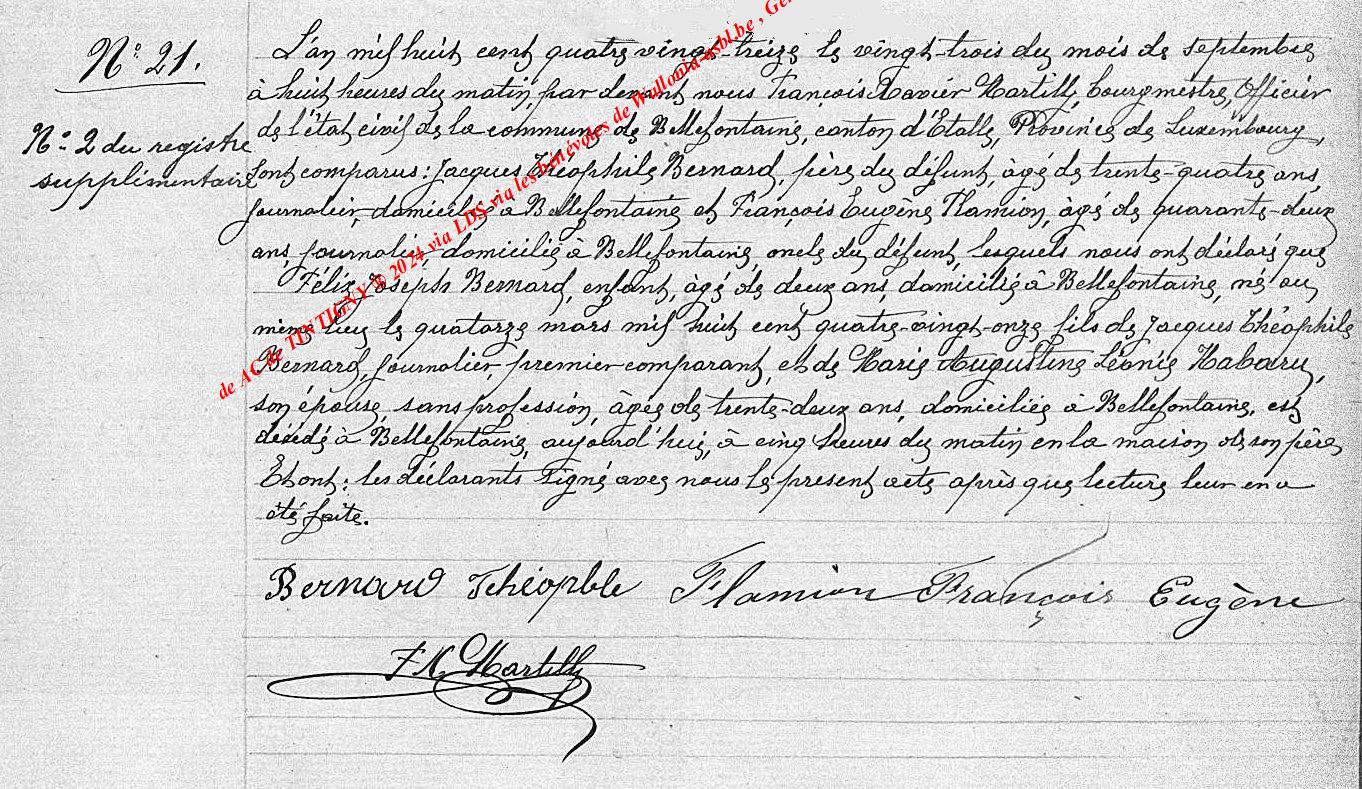 N° 21.
N° 2 du registre
supplémentaire
L'an mil huit cent quatre vingt-treize le vingt-trois du mois de septembre
à huit heures du matin, par devant nous François Xavier Martilly, bourgmestre, Officier
de l'état civil de la commune de Bellefontaine, canton d'Etalle, Province de Luxembourg,
sont comparus: Jacques Théophile Bernard, père du défunt, âgé de trente-quatre ans,
journalier, domicilié à Bellefontaine et François Eugène Flamion, âgé de quarante-deux
ans, journalier, domicilié à Bellefontaine, oncle du défunt, lesquels nous ont déclaré que
Félix Joseph Bernard, enfant, âgé de deux ans, domicilié à Bellefontaine, né au
même lieu le quatorze mars mil huit cent quatre-vingt-onze fils de Jacques Théophile
Bernard, journalier, premier comparant, et de Marie Augustine Léonie Habaru,
son épouse, sans profession, âgée de trente-deux ans, domiciliée à Bellefontaine, est
décédé à Bellefontaine, aujourd'hui, à cinq heures du matin en la maison de son père
Et ont: les déclarants signé avec nous le present acte après que lecture leur en a
été faite.
Bernard Théophle Flamion François Eugène
F X Martilly
de AC de TINTIGNY ® 2024 via LDS via les bénévoles de Wallonia-asbl.be ,